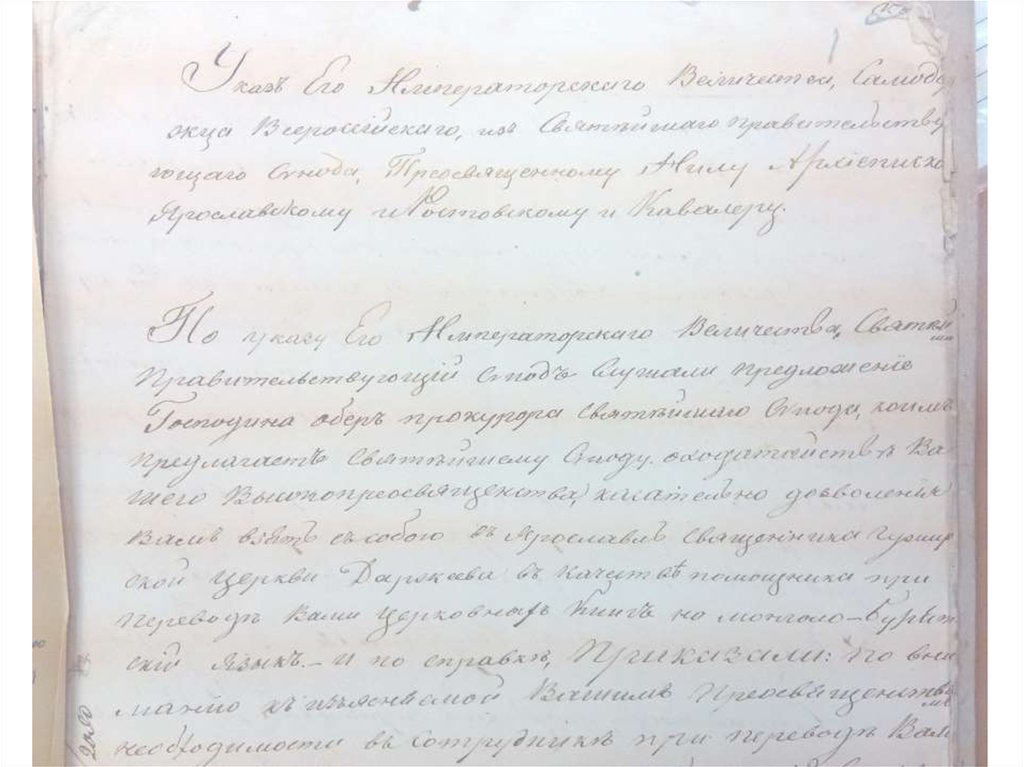 Указъ Его Императорскаго Величества, Самодер
жца Всероссійскаго, изъ Святѣйшаго правительству
ющаго Синода, Преосвященному Нилу Архіепископу
Ярославскому и Ростовскому и Кавалеру.
По указу Его Императорскаго Величества, Святѣйшій
Правительствующій Синодъ слушали предложеніе
Господина оберъ прокурора Святѣйшаго Синода, коимъ
предлагаетъ Святѣйшему Синоду о ходатайствѣ Ва-
шего Высокопреосвященства, касательно дозволенія
Вамъ взять съ собою въ Ярославль Священника
ской церкви въ качествѣ помощника при
переводѣ Вами церковныхъ книгъ на монголо-Бурят
скій языкъ. – И по справкѣ, Приказали: По вни
манію къ изъясняемой Вашимъ Преосвященствомъ
необходимости въ сотрудникѣ при переводѣ Вами